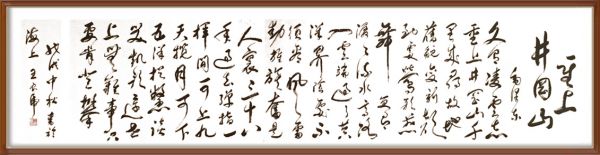 重上
井岡山
毛泽东
久有凌云志
重上井冈山千
里来寻故地
旧貌变新颜
到处莺歌燕
舞更有
潺潺流水高路
入云端过了黄
洋界险处不
须看风雷
动旌旗奋是
人寰三十八
年过去弹指一
挥间可上九
天揽月可下
五洋捉鳖谈
笑凯歌还世
上无难事只
要肯登攀
戊戌中秋書於
海上王